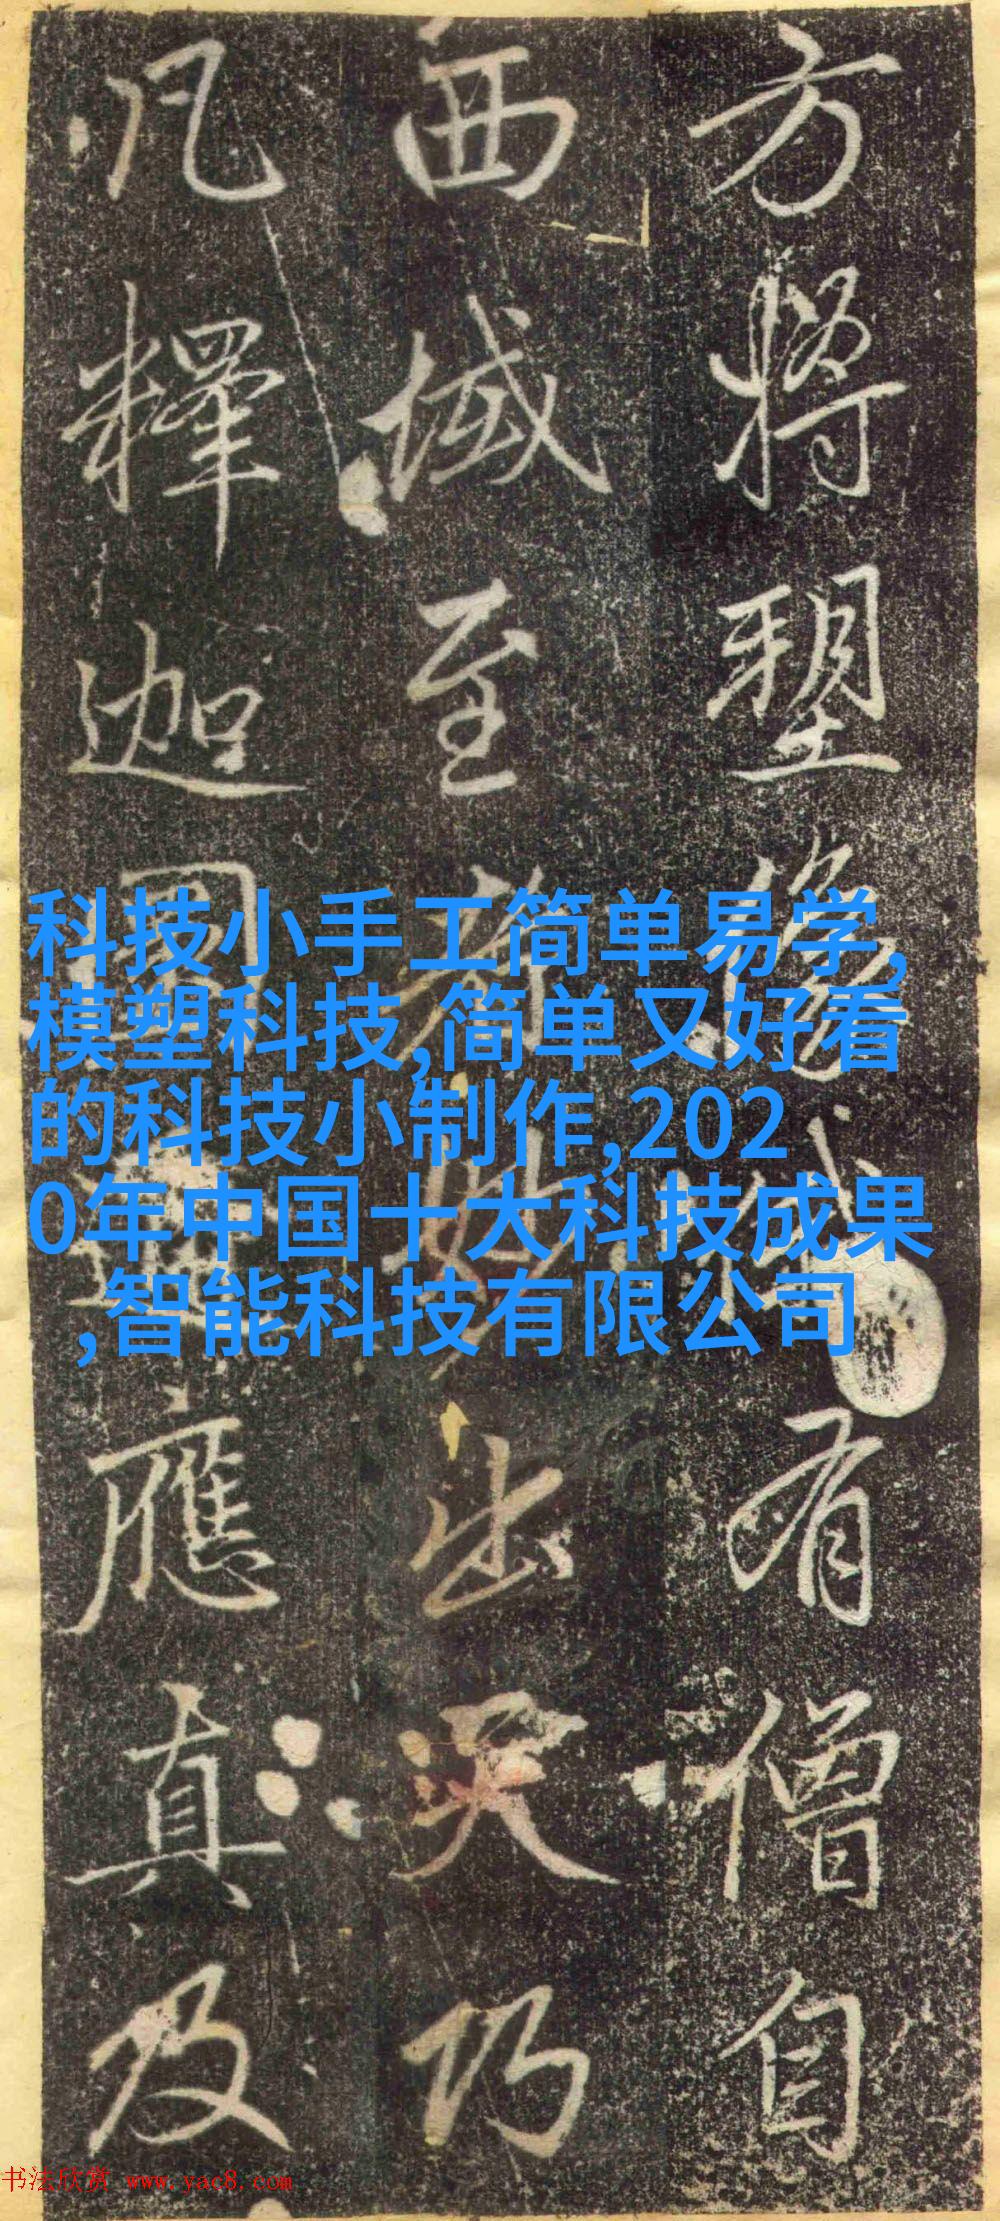 方將塑像有僧自
西域至妙出天巧
凡釋迦應真及
科技小手工简单易学,
模塑科技,简单又好看
的科技小制作,202
0年中国十大科技成果
,智能科技有限公司
书法欣赏 www.yac8.com